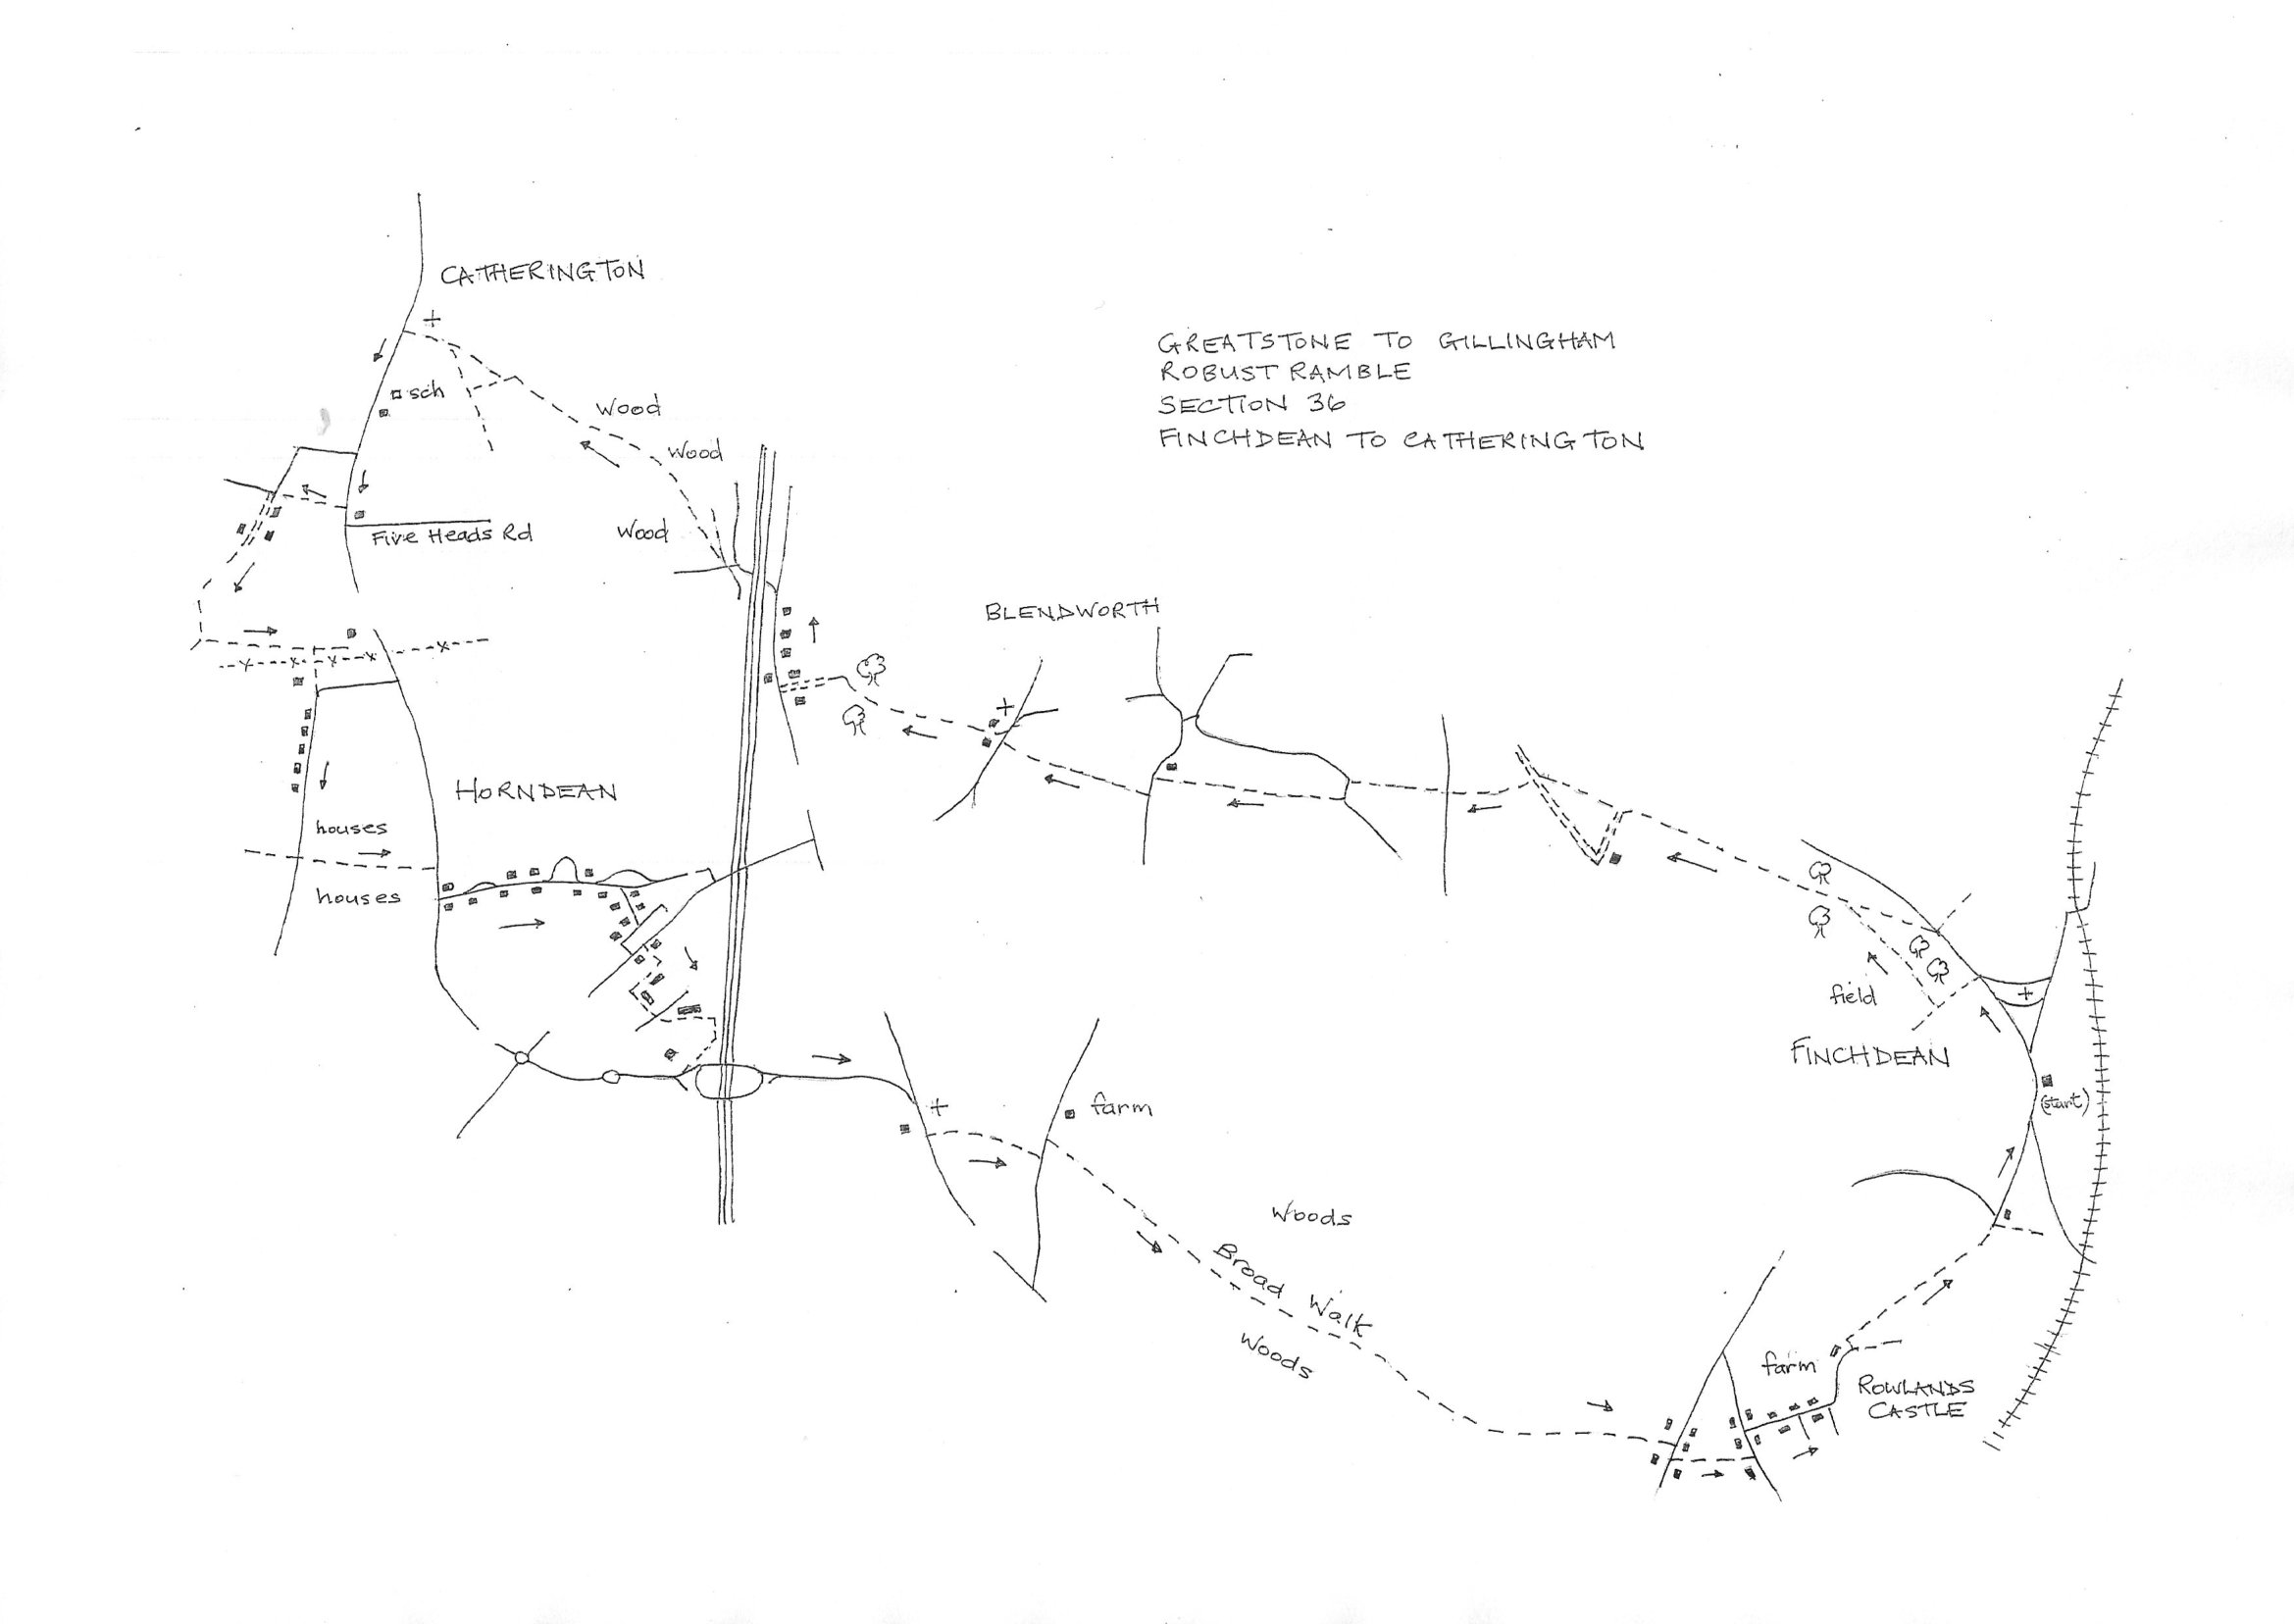 CATHERINGTON
GREATSTONE TO GILLINGHAM
ROBUST RAMBLE
SECTION 36
FINCHDEAN TO CATHERINGTON
sch
Wood
Wood
Wood
Five Heads Rd
BLENDWORTH
HORNDEAN
houses
houses
field
FINCHDEAN
(start)
farm
Woods
Broad Walk
Woods
farm
ROWLANDS
CASTLE